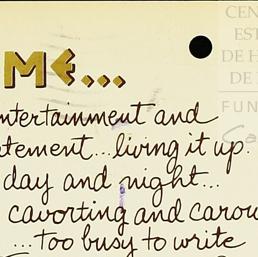 ME...
ntertainment and
tement...living it up.
day and night...
cavorting and carou
...too busy to write
CEN
EST
DE H
DE
FUN